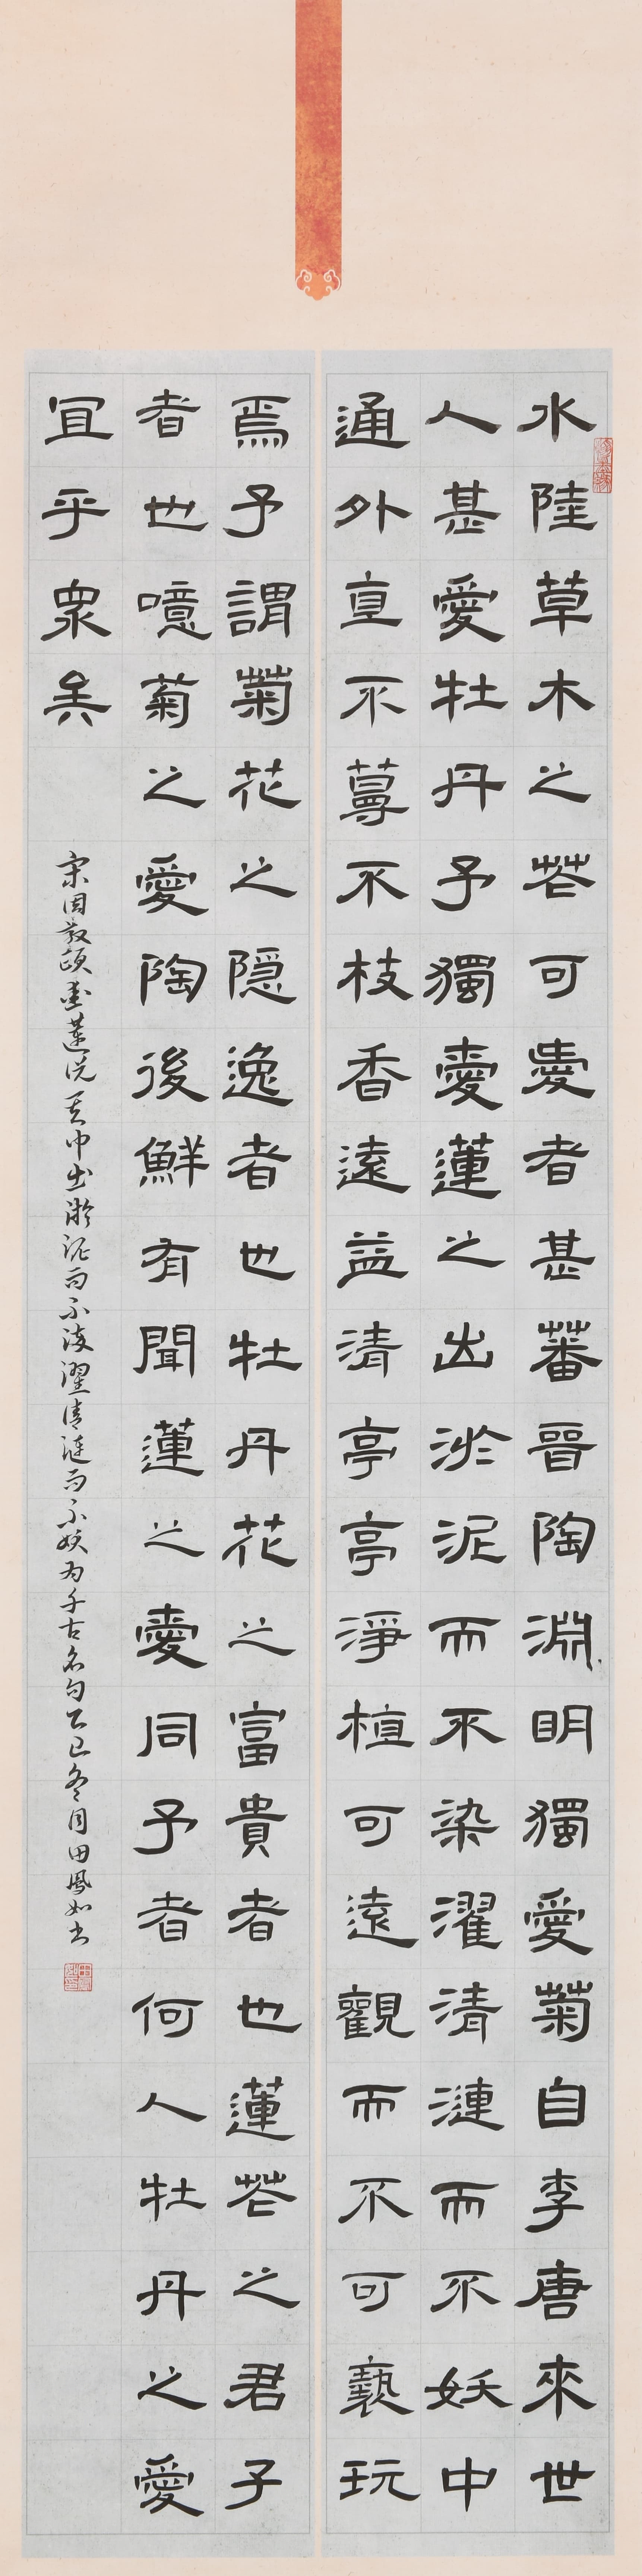 水陸草木之芲可愛者甚蕃晉陶淵明獨愛菊自李唐來世
人甚愛牡丹予獨愛蓮之出淤泥而不染濯清漣而不妖中
通外直不蔓不枝香遠益清亭亭淨植可遠觀而不可褻玩
焉予謂菊花之隱逸者也牡丹花之富貴者也蓮芲之君子
者也噫菊之愛陶後鮮有聞蓮之愛同予者何人牡丹之愛
宜乎眾矣
宋周敦頤愛蓮說其中出淤泥而不染濯清漣而不妖為千古名句乙巳冬月田鳳如書